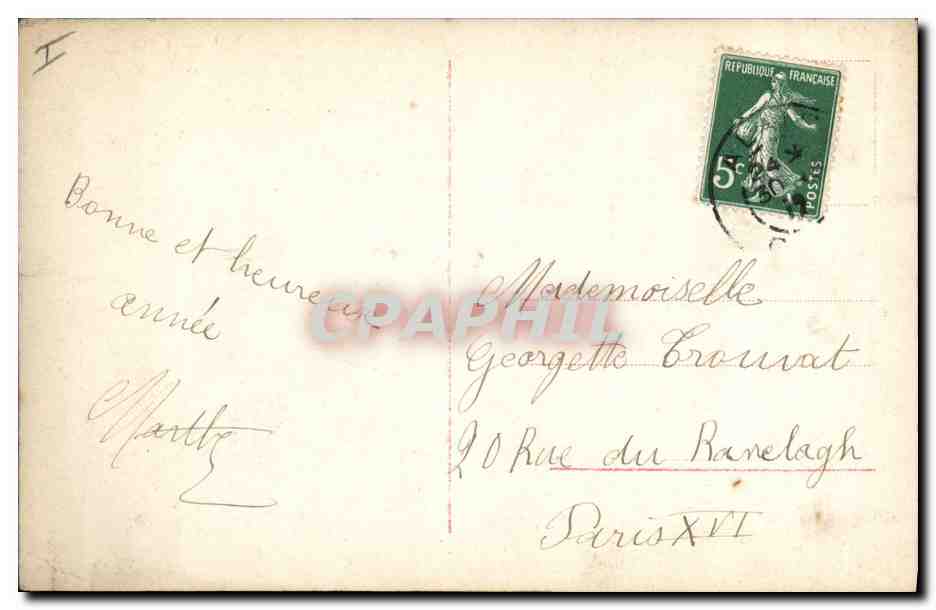 I
RÉPUBLIQUE FRANÇAISE
5c
POSTES
Bonne et heureuse
année
Marthe
CPAPHIL
Mademoiselle
Georgette Trouvat
20 Rue du Ranelagh
Paris XVI